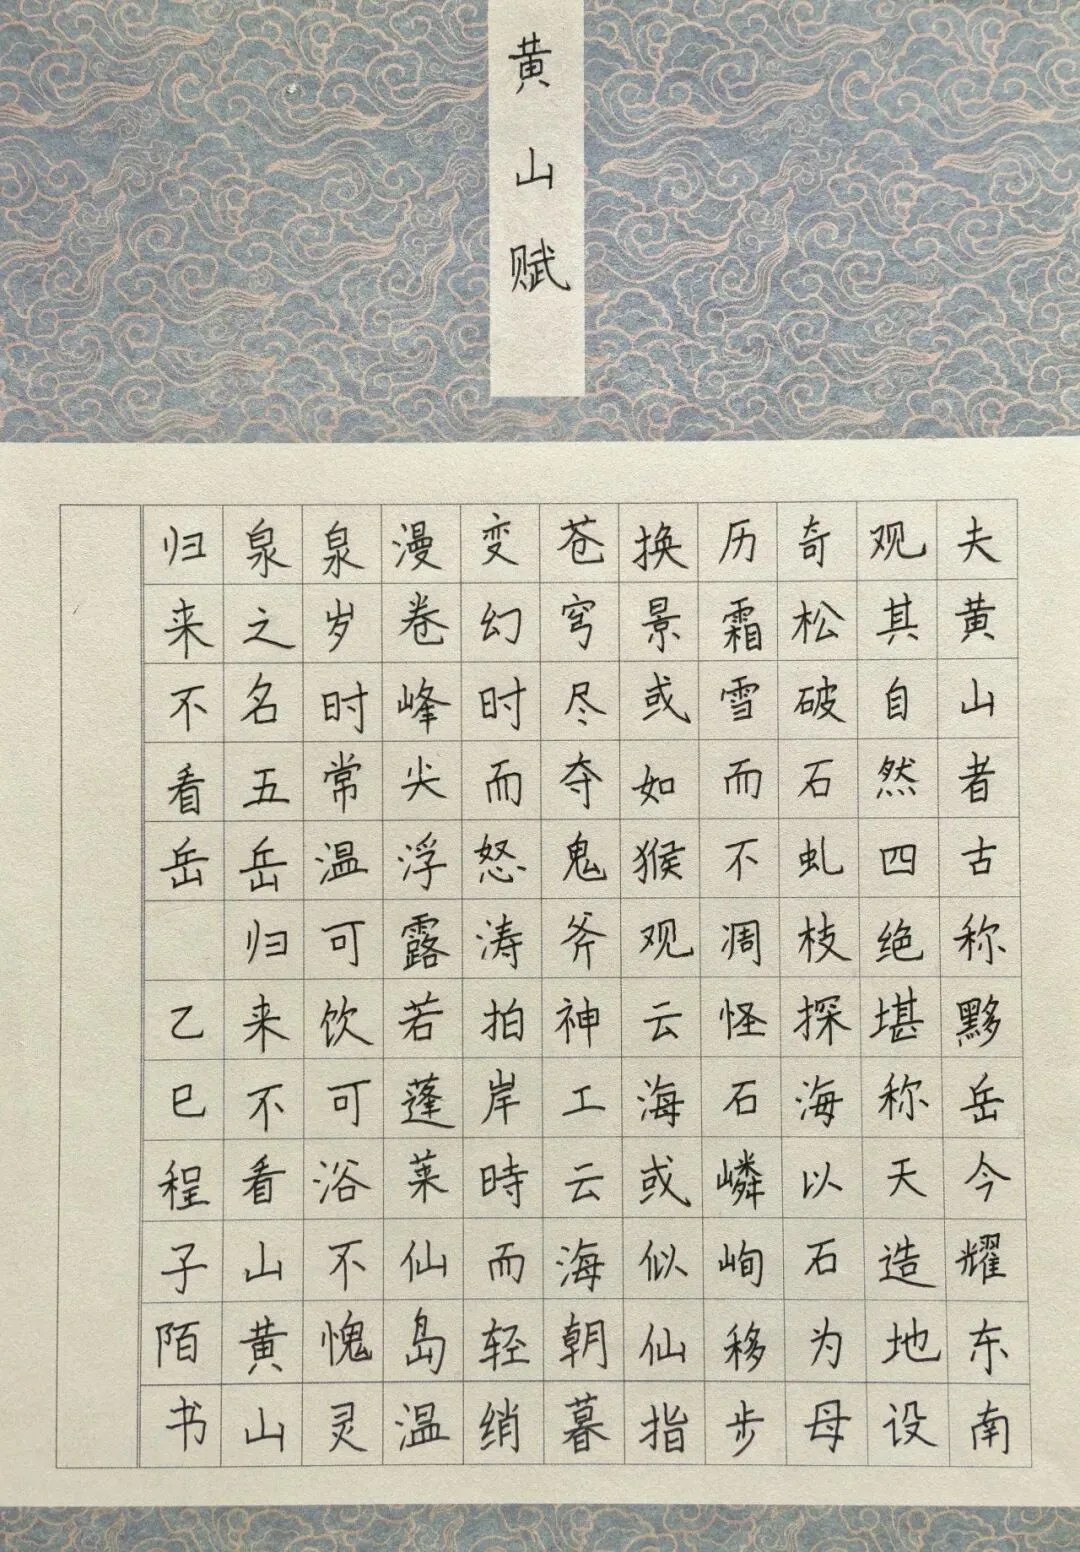 黄山赋
夫黄山者古称黟岳今耀东南
观其自然四绝堪称天造地设
奇松破石虬枝探海以石为母
历霜雪而不凋怪石嶙峋移步
换景或如猴观云海或似仙指
苍穹尽夺鬼斧神工云海朝暮
变幻时而怒涛拍岸時而轻绡
漫卷峰尖浮露若蓬莱仙岛温
泉岁时常温可饮可浴不愧灵
泉之名五岳归来不看山黄山
归来不看岳 乙巳程子陌书